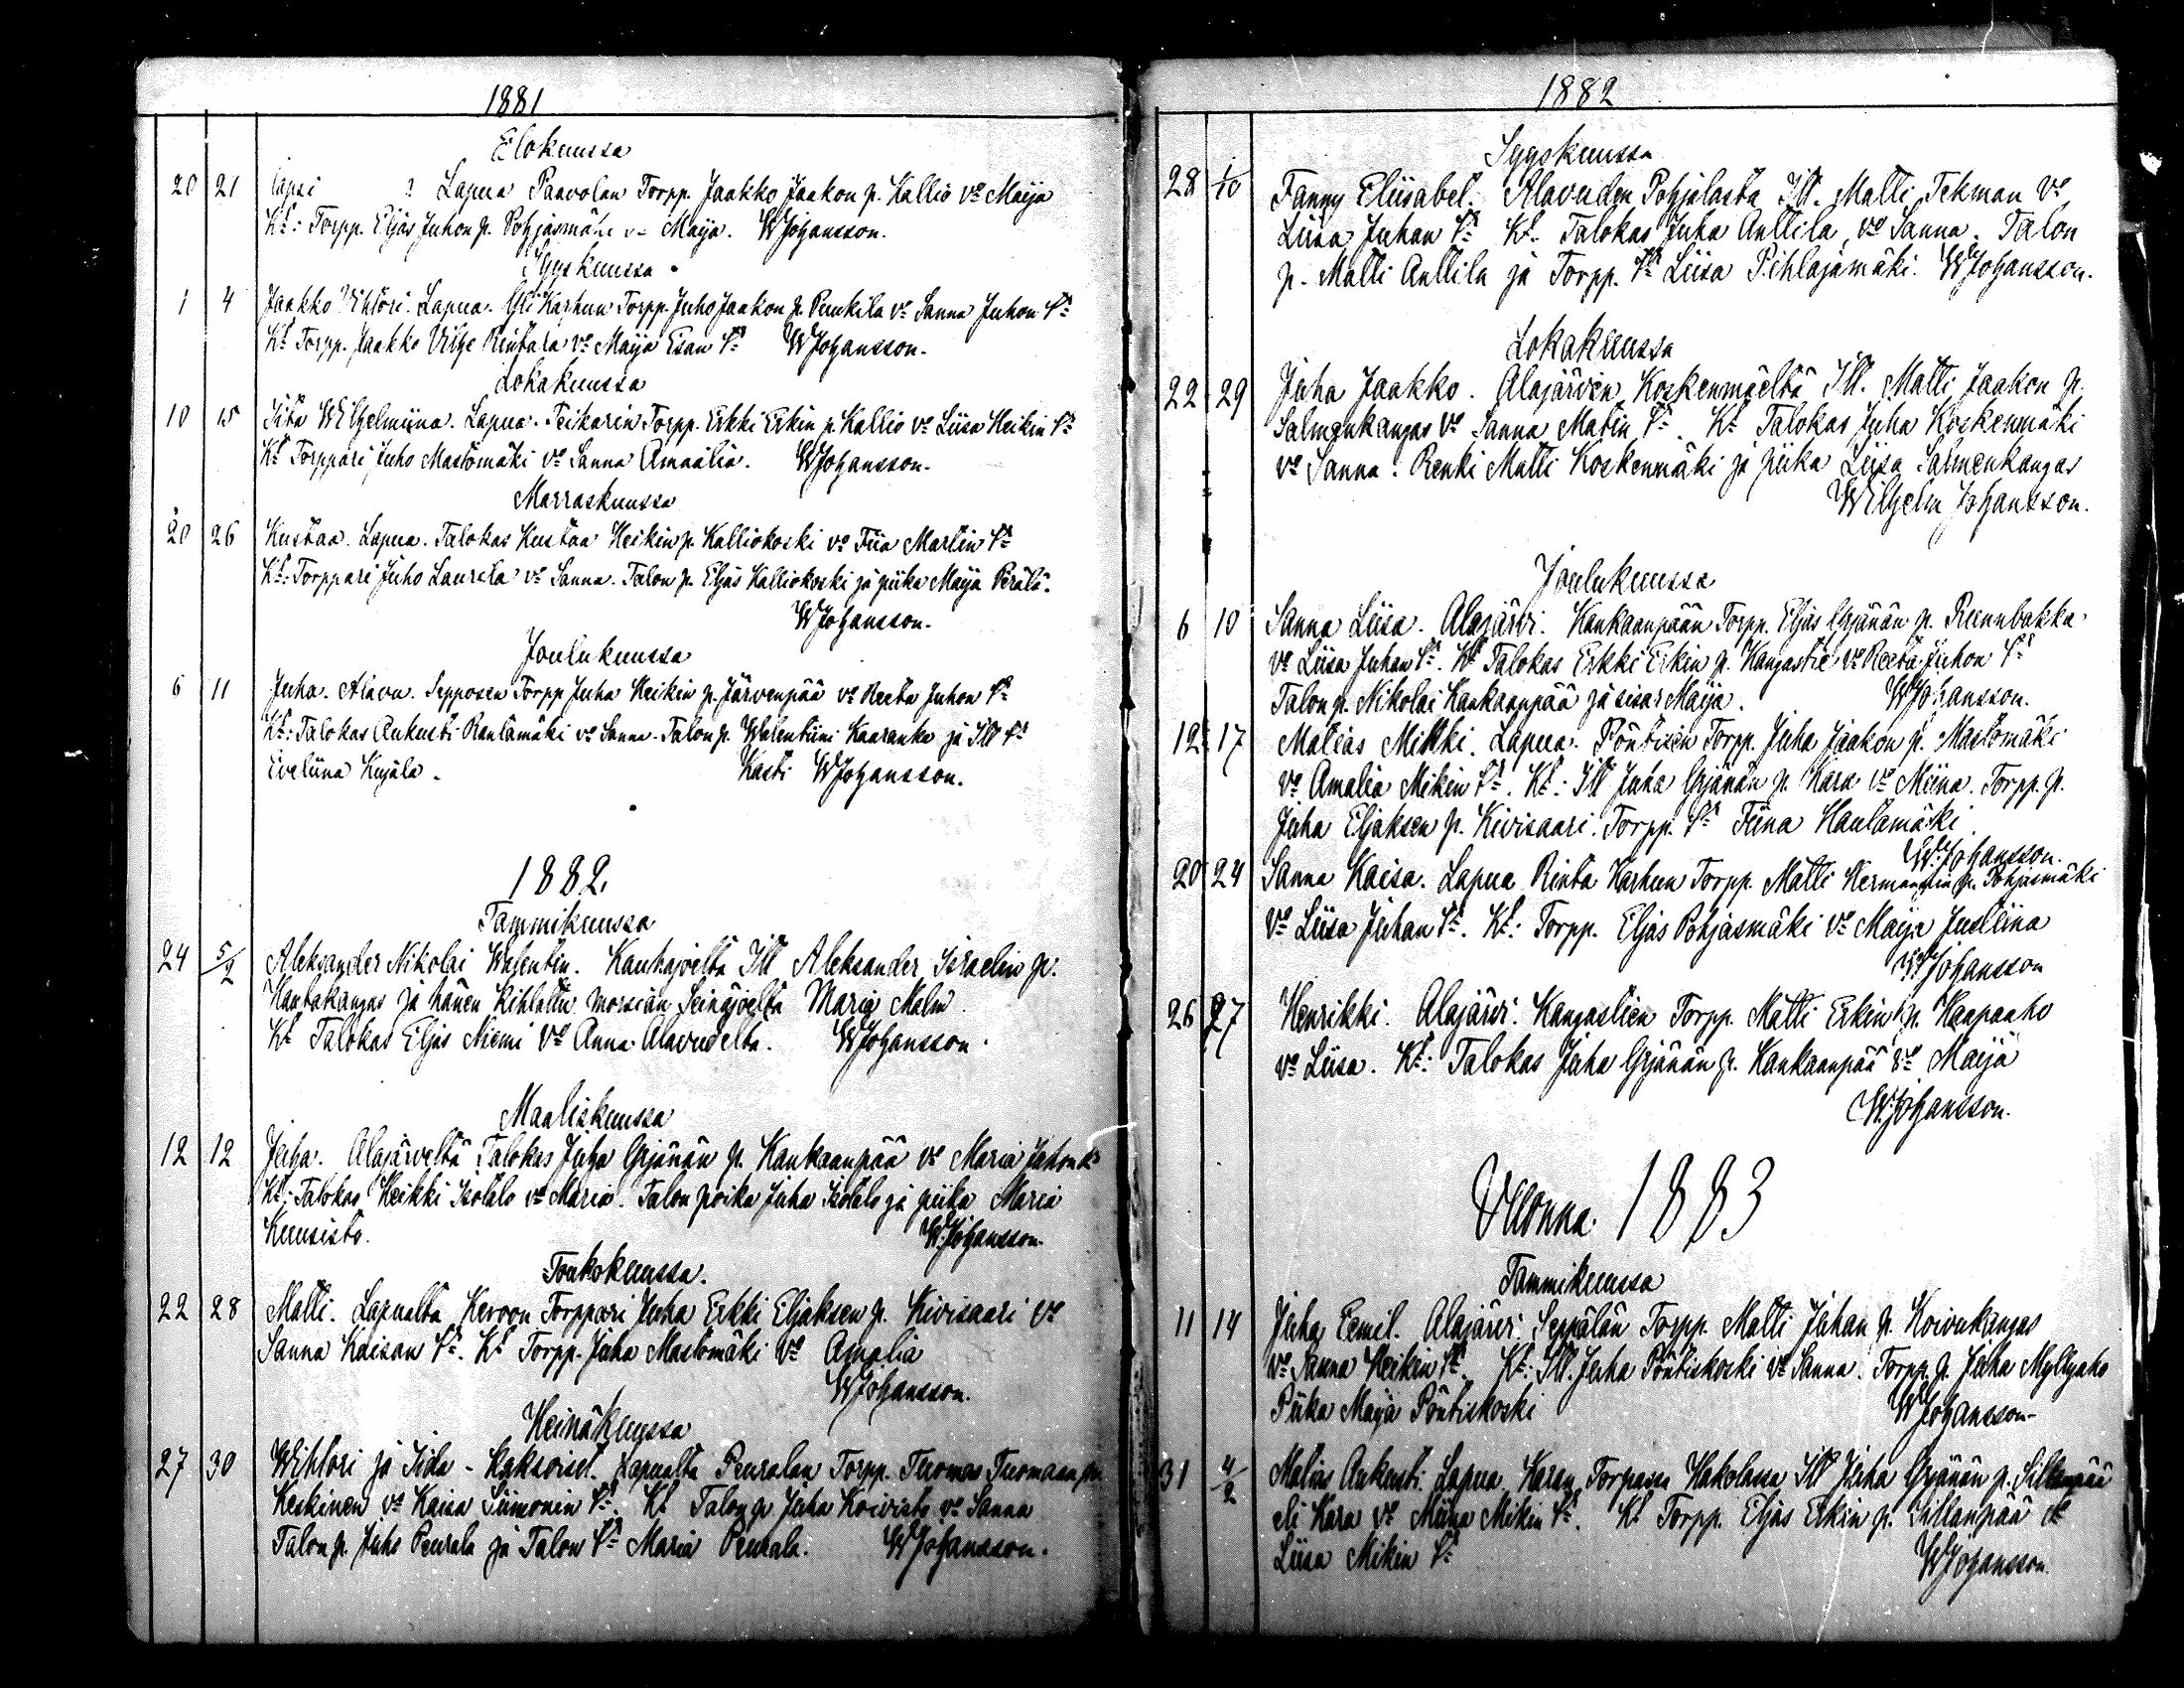 1881
Elokuussa
20 21 lapsi ? Lapua Paavolan Torpp. Jaakko Jaakon p. Kallio vo Maija
Kt: Torpp. Eljas Juhon p. Pohjasmäki vo Maija. WJohansson.
Syyskuussa
1 4 Jaakko Vihtori. Lapua. Yli Karhun Torpp. Juho Jaakon p. vo Sanna Juhon tr
Kt Torpp. Jaakko Rintala vo Maija Esan tr WJohansson.
Lokakuussa
10 15 Iita Wilhelmiina. Lapua. Torpp. Erkki Erkin p. Kallio vo Liisa Heikin tr
Kt Torppari Juho Mastomäki vo Sanna Amaalia. WJohansson.
Marraskuussa
20 26 Kustaa. Lapua. Talokas Kustaa Heikin p. Kalliokoski vo Fiia Martin tr
Kt: Torppari Juho Laurila vo Sanna. Talon p. Eljas Kalliokoski ja piika Maija Perälä.
WJohansson.
Joulukuussa
6 11 Juha. Alavu. Sepposen Torpp Juha Heikin p. Järvenpää vo Reeta Juhon tr
Kt: Talokas Aukusti Rantamäki vo Sanna. Talon p. Walentiini Kaaranka ja Itl tr
Eveliina Kujala. Kasti WJohansson.
1882.
Tammikuussa
24 5/2 Aleksander Nikolai Walentin. Kauhajoelta Itl Aleksander Israelin p.
Hautakangas ja hänen kihlattu morsian Seinäjoelta Maria Malm.
Kt Talokas Eljas Niemi vo Anna Alavudelta. WJohansson.
Maaliskuussa
12 12 Juha. Alajärveltä Talokas Juha Yrjänän p. Kankaanpää vo Maria Juhon tr
Kt: Talokas Heikki Isotalo vo Maria. Talon poika Juha Isotalo ja piika Maria
Kuusisto. WJohansson.
Toukokuussa.
22 28 Matti. Lapualta Keroon Torppari Juha Erkki Eljaksen p. Kivisaari vo
Sanna Kaisan tr. Kt Torpp. Juha Mastomäki vo Amalia
WJohansson.
Heinäkuussa
27 30 Wihtori ja Iida - Kaksoiset. Lapualta Peuralan Torpp. Tuomas Tuomaan p.
Keskinen vo Kaisa Siimonin tr. Kt Talon p. Juha Koivisto vo Sanna
Talon p. Juho Peurala ja Talon tr Maria Peurala. WJohansson.
1882
Syyskuussa
28 1/10 Fanny Eliisabet. Alavuden Pohjalasta Itl. Matti Tekman vo
Liisa Juhan tr Kt. Talokas Juha Anttila, vo Sanna. Talon
p. Matti Anttila ja Torpp. tr Liisa Pihlajamäki. WJohansson.
Lokakuussa
22 29 Juha Jaakko. Alajärven Koskenmäeltä Itl. Matti Jaakon p.
Salmenkangas vo Sanna Matin tr. Kt Talokas Juha Koskenmäki
vo Sanna. Renki Matti Koskenmäki ja piika Liisa Salmenkangas
Wilhelm Johansson.
Joulukuussa
6 10 Sanna Liisa. Alajärvi. Kankaanpään Torpp. Eljas Yrjänän p. Ruunbakka
vo Liisa Juhan tr. Kt Talokas Erkki Erkin p. Kangastie vo Reeta Juhon tr
Talon p. Nikolai Kankaanpää ja sisar Maija. WJohansson.
12 17 Matias Mikki. Lapua. Pöntisen Torpp. Juha Jaakon p. Mastomäki
vo Amalia Mikin tr. Kt: Itl Juha Yrjänän p. Kara vo Miina. Torpp. p.
Juha Eljaksen p. Kivisaari. Torpp. tr Fiina Hautamäki
W. Johansson.
20 24 Sanna Kaisa. Lapua Rinta Karhun Torpp. Matti Hermannin p. Pohjasmäki
vo Liisa Juhan tr. Kt: Torpp. Eljas Pohjasmäki vo Maija Justiina
W Johansson
26 27 Henrikki. Alajärvi. Kangastien Torpp. Matti Erkin p. Haapaaho
vo Liisa. Kt: Talokas Juha Yrjänän p. Kankaanpää vo Maija
W. Johansson.
Vuonna 1883
Tammikuussa
11 14 Juha Eemil. Alajärvi. Seppälän Torpp. Matti Juhan p. Koivukangas
vo Sanna Heikin tr. Kt: Itl. Juha Pöntiskoski vo Sanna. Torpp. p. Juha Myllyaho
Piika Maija Pöntiskoski WJohansson.
31 4/2 Matias Aukusti. Lapua Karan Torpassa Hakolassa Itl Juha Yrjänän p. Sillanpää
eli Kara vo Miina Mikin tr. Kt Torpp. Eljas Erkin p. Sillanpää vo
Liisa Mikin tr WJohansson.